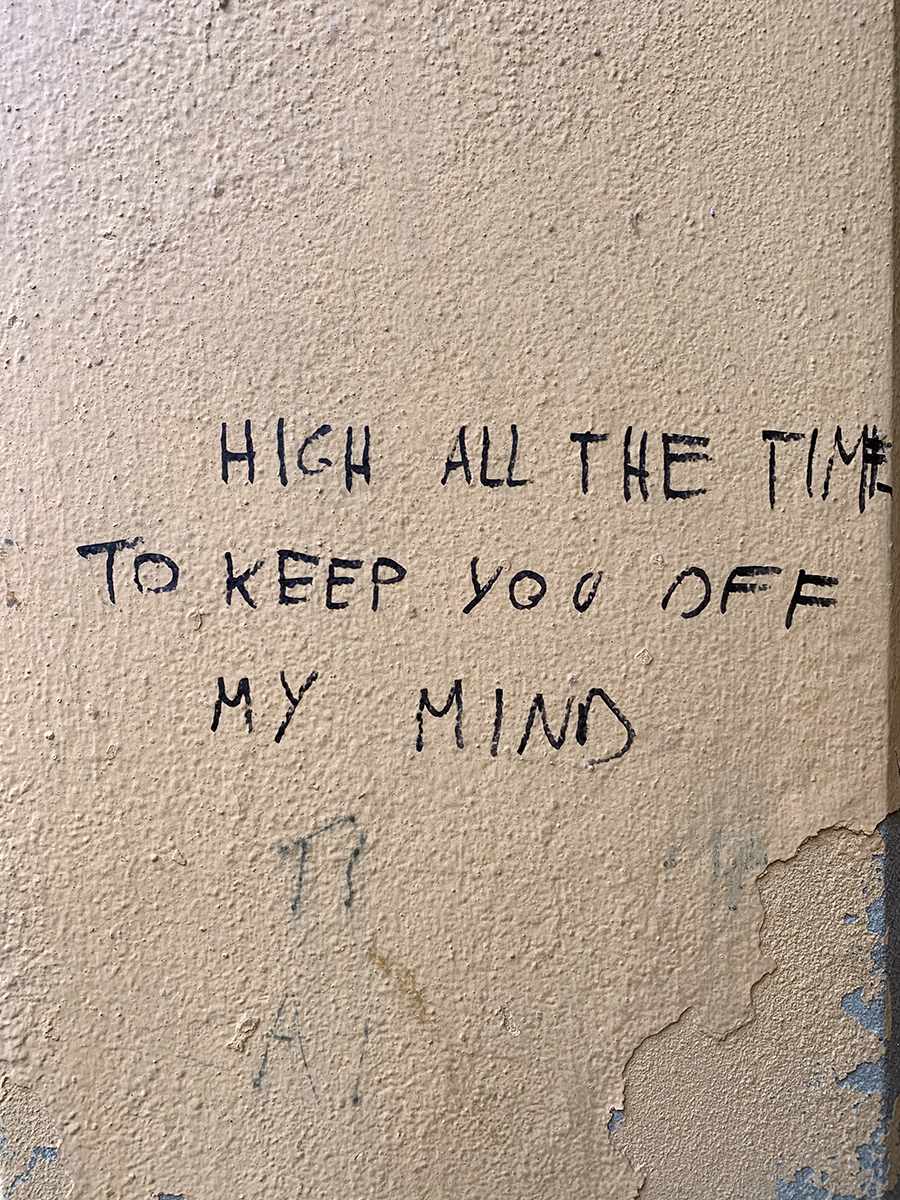 HIGH ALL THE TIME
TO KEEP YOU OFF
MY MIND